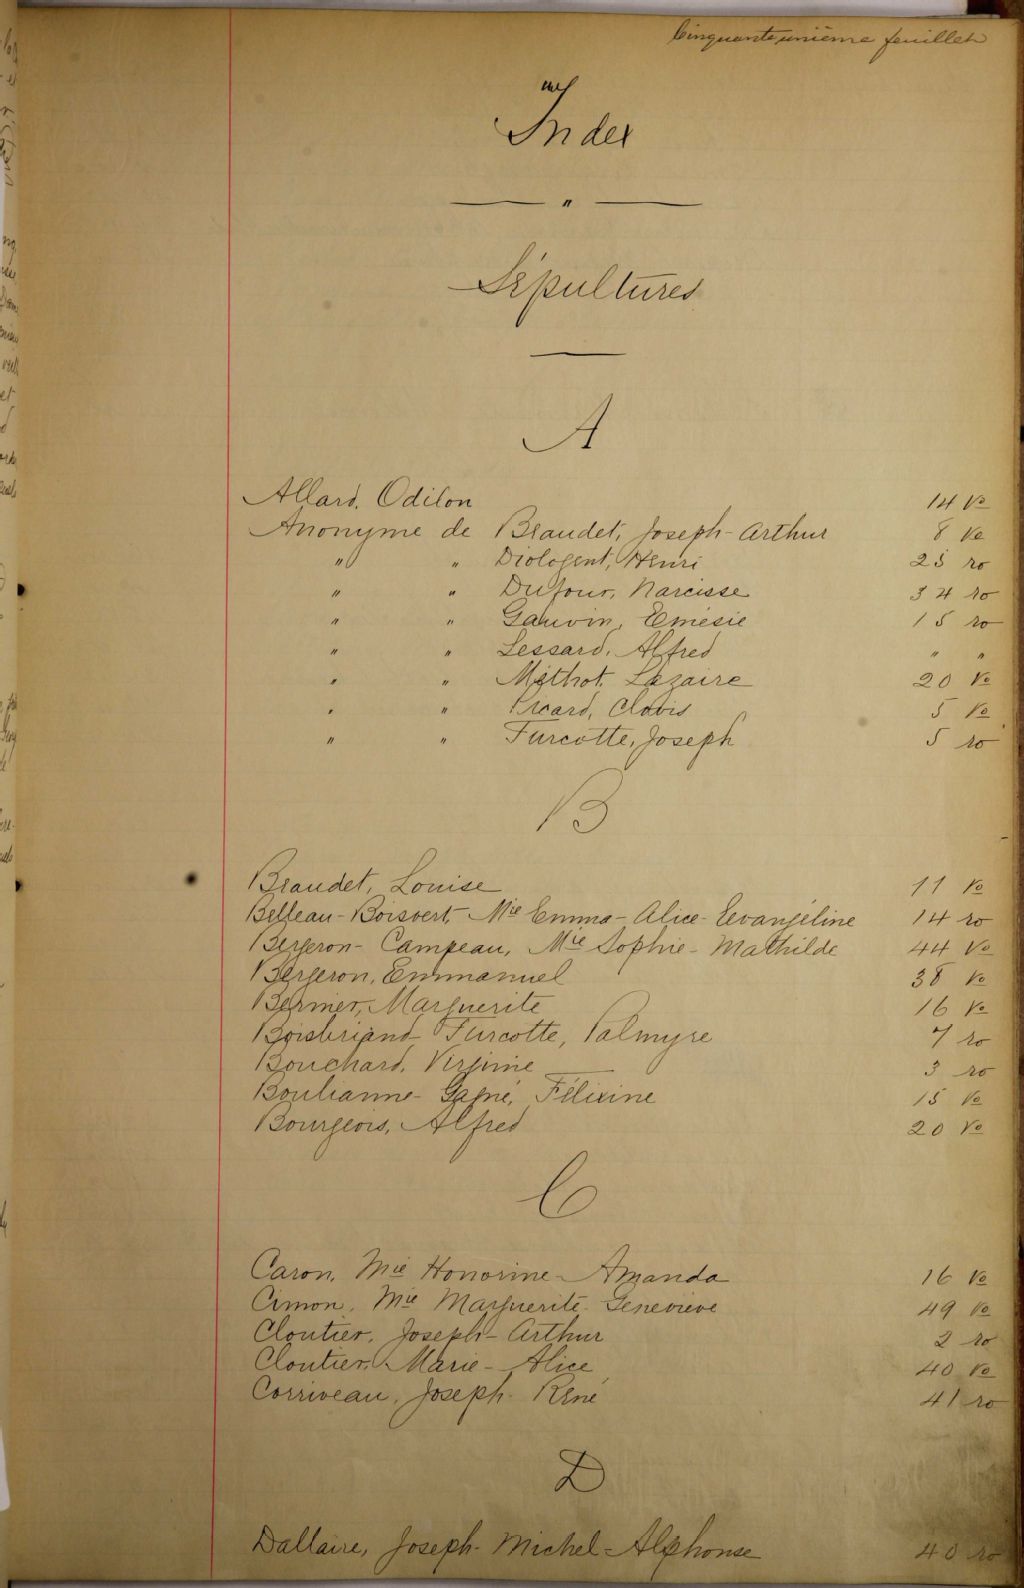 Cinquante unième feuillet
Index
"
Sépultures
A
Allard, Odilon 14 Vo
Anonyme de Beaudet, Joseph-Arthur 8 Vo
" " Diologent, Henri 25 ro
" " Dufour, Narcisse 34 ro
" " Gauvin, Emésie 15 ro
" " Lessard, Alfred " "
" " Méthot, Lazaire 20 Vo
" " Picard, Clovis 5 Vo
" " Turcotte, Joseph 5 ro
B
Beaudet, Louise 11 Vo
Belleau-Boisvert, Mie Emma-Alice-Eevangéline 14 ro
Bergeron-Campeau, Mie Sophie-Mathilde 44 Vo
Bergeron, Emmanuel 38 Vo
Bernier, Marguerite 16 Vo
Boisbriand Turcotte, Palmyre 7 ro
Bouchard, Virginie 3 ro
Boulianne-Gagné, Félixine 15 Vo
Bourgeois, Alfred 20 Vo
C
Caron, Mie Honorine-Amanda 16 Vo
Cimon, Mie Marguerite-Geneviève 49 Vo
Cloutier, Joseph-Arthur 2 ro
Cloutier, Marie-Alice 40 Vo
Corriveau, Joseph-René 41 ro
D
Dallaire, Joseph-Michel-Alphonse 40 ro